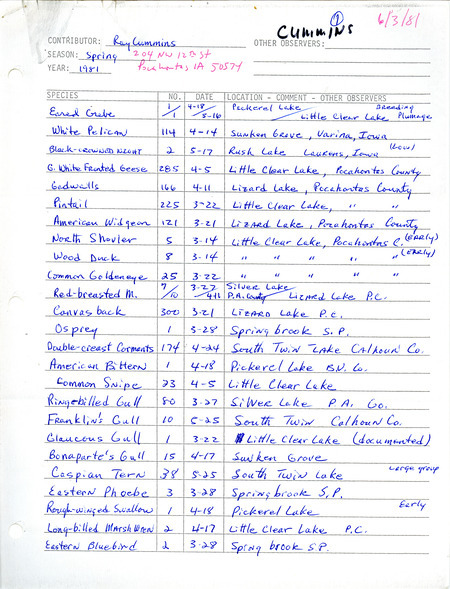 CUMMINS ①
6/3/81
CONTRIBUTOR: Ray Cummins OTHER OBSERVERS:
SEASON: Spring 204 NW 12th St
YEAR: 1981 Pocahontas, IA 50574
SPECIES NO. DATE LOCATION - COMMENT - OTHER OBSERVERS
Eared Grebe 1/1 4-18/5-16 Pickerel Lake / Little Clear Lake Breeding Plumage
White Pelican 114 4-14 Sunken Grove, Varina, Iowa
Black-crowned Night 2 5-17 Rush Lake Laurens, Iowa (Low)
G. White Fronted Geese 285 4-5 Little Clear Lake, Pocahontas County
Gadwalls 166 4-11 Lizard Lake, Pocahontas County
Pintail 225 3-22 Little Clear Lake, " "
American Widgeon 121 3-21 Lizard Lake, Pocahontas County
North Shovler 5 3-14 Little Clear Lake, Pocahontas C. (Early)
Wood Duck 8 3-14 " " " " (Early)
Common Goldeneye 25 3-22 " " " "
Red-breasted M. 7/10 3-27/4-11 Silver Lake P.A. County / Lizard Lake P.C.
Canvasback 300 3-21 Lizard Lake P.C.
Osprey 1 3-28 Springbrook S.P.
Double-creast Cormonts 174 4-24 South Twin Lake Calhoun Co.
American Bittern 1 4-18 Pickerel Lake B.V. Co.
Common Snipe 23 4-5 Little Clear Lake
Ringe-billed Gull 80 3-27 Silver Lake P.A. Co.
Franklin's Gull 10 5-25 South Twin Calhoun Co.
Glaucous Gull 1 3-22 Little Clear Lake (documented)
Bonaparte's Gull 15 4-17 Sunken Grove
Caspian Tern 38 5-25 South Twin Lake Large group
Eastern Phoebe 3 3-28 Springbrook S.P.
Rough-winged Swallow 1 4-18 Pickerel Lake Early
Long-billed Marsh Wren 2 4-17 Little Clear Lake P.C.
Eastern Bluebird 2 3-28 Spring brook S.P.